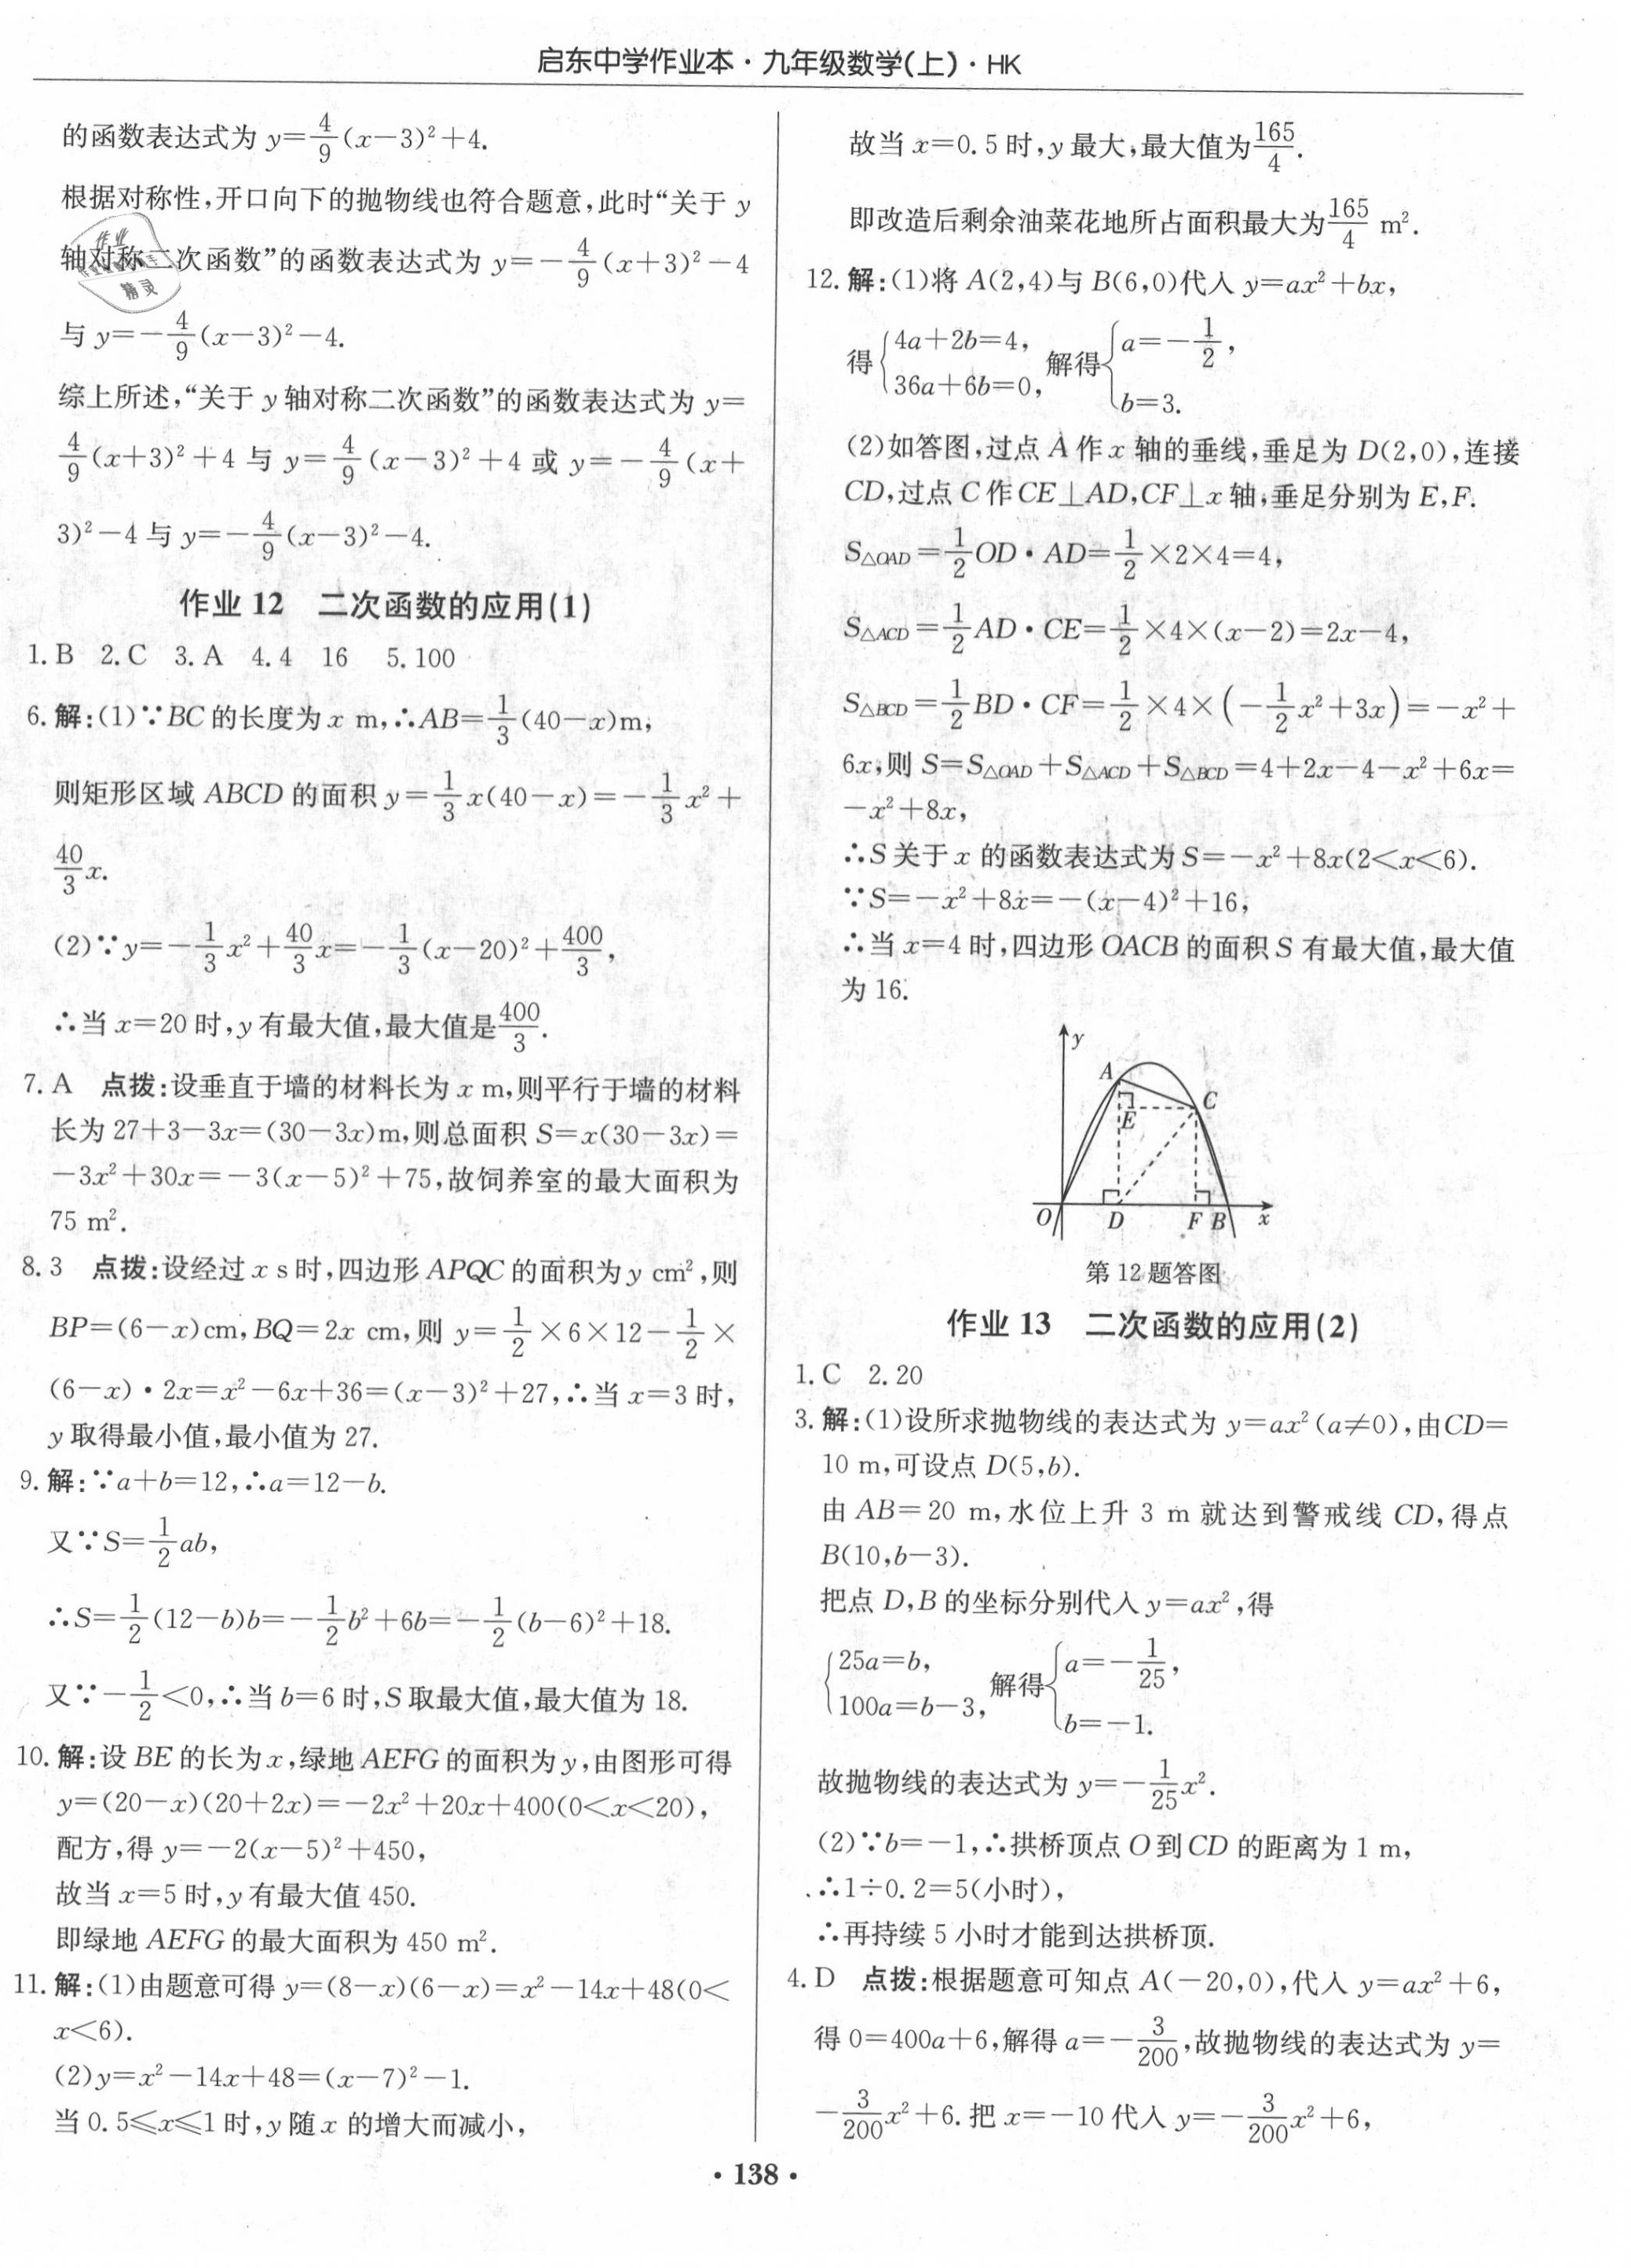 启东中学作业本·九年级数学(上)·HK
的函数表达式为 y=4/9(x-3)²+4.
根据对称性,开口向下的抛物线也符合题意,此时“关于 y
轴对称二次函数”的函数表达式为 y=-4/9(x+3)²-4
与 y=-4/9(x-3)²-4.
综上所述,“关于 y 轴对称二次函数”的函数表达式为 y=
4/9(x+3)²+4 与 y=4/9(x-3)²+4 或 y=-4/9(x+
3)²-4 与 y=-4/9(x-3)²-4.
作业 12 二次函数的应用(1)
1. B 2. C 3. A 4. 4 16 5. 100
6. 解:(1)∵BC 的长度为 x m,∴AB=1/3(40-x)m,
则矩形区域 ABCD 的面积 y=1/3x(40-x)=-1/3x²+
40/3x.
(2)∵y=-1/3x²+40/3x=-1/3(x-20)²+400/3,
∴当 x=20 时,y 有最大值,最大值是400/3.
7. A 点拨:设垂直于墙的材料长为 x m,则平行于墙的材料
长为 27+3-3x=(30-3x)m,则总面积 S=x(30-3x)=
-3x²+30x=-3(x-5)²+75,故饲养室的最大面积为
75 m².
8. 3 点拨:设经过 x s 时,四边形 APQC 的面积为 y cm²,则
BP=(6-x)cm,BQ=2x cm,则 y=1/2×6×12-1/2×
(6-x)·2x=x²-6x+36=(x-3)²+27,∴当 x=3 时,
y 取得最小值,最小值为 27.
9. 解:∵a+b=12,∴a=12-b.
又∵S=1/2ab,
∴S=1/2(12-b)b=-1/2b²+6b=-1/2(b-6)²+18.
又∵-1/2<0,∴当 b=6 时,S 取最大值,最大值为 18.
10. 解:设 BE 的长为 x,绿地 AEFG 的面积为 y,由图形可得
y=(20-x)(20+2x)=-2x²+20x+400(0<x<20),
配方,得 y=-2(x-5)²+450,
故当 x=5 时,y 有最大值 450.
即绿地 AEFG 的最大面积为 450 m².
11. 解:(1)由题意可得 y=(8-x)(6-x)=x²-14x+48(0<
x<6).
(2)y=x²-14x+48=(x-7)²-1.
当 0.5≤x≤1 时,y 随 x 的增大而减小,
故当 x=0.5 时,y 最大,最大值为165/4.
即改造后剩余油菜花地所占面积最大为165/4 m².
12. 解:(1)将 A(2,4)与 B(6,0)代入 y=ax²+bx,
得{4a+2b=4, 36a+6b=0, 解得{a=-1/2, b=3.
(2)如答图,过点 A 作 x 轴的垂线,垂足为 D(2,0),连接
CD,过点 C 作 CE⊥AD,CF⊥x 轴,垂足分别为 E,F.
S△OAD=1/2OD·AD=1/2×2×4=4,
S△ACD=1/2AD·CE=1/2×4×(x-2)=2x-4,
S△BCD=1/2BD·CF=1/2×4×(-1/2x²+3x)=-x²+
6x,则 S=S△OAD+S△ACD+S△BCD=4+2x-4-x²+6x=
-x²+8x,
∴S 关于 x 的函数表达式为 S=-x²+8x(2<x<6).
∵S=-x²+8x=-(x-4)²+16,
∴当 x=4 时,四边形 OACB 的面积 S 有最大值,最大值
为 16.
y
A
C
E
O D F B x
第 12 题答图
作业 13 二次函数的应用(2)
1. C 2. 20
3. 解:(1)设所求抛物线的表达式为 y=ax²(a≠0),由CD=
10 m,可设点 D(5,b).
由 AB=20 m,水位上升 3 m 就达到警戒线 CD,得点
B(10,b-3).
把点 D,B 的坐标分别代入 y=ax²,得
{25a=b, 100a=b-3, 解得{a=-1/25, b=-1.
故抛物线的表达式为 y=-1/25x².
(2)∵b=-1,∴拱桥顶点 O 到 CD 的距离为 1 m,
∴1÷0.2=5(小时),
∴再持续 5 小时才能到达拱桥顶.
4. D 点拨:根据题意可知点 A(-20,0),代入 y=ax²+6,
得 0=400a+6,解得 a=-3/200,故抛物线的表达式为 y=
-3/200x²+6. 把 x=-10 代入 y=-3/200x²+6,
·138·